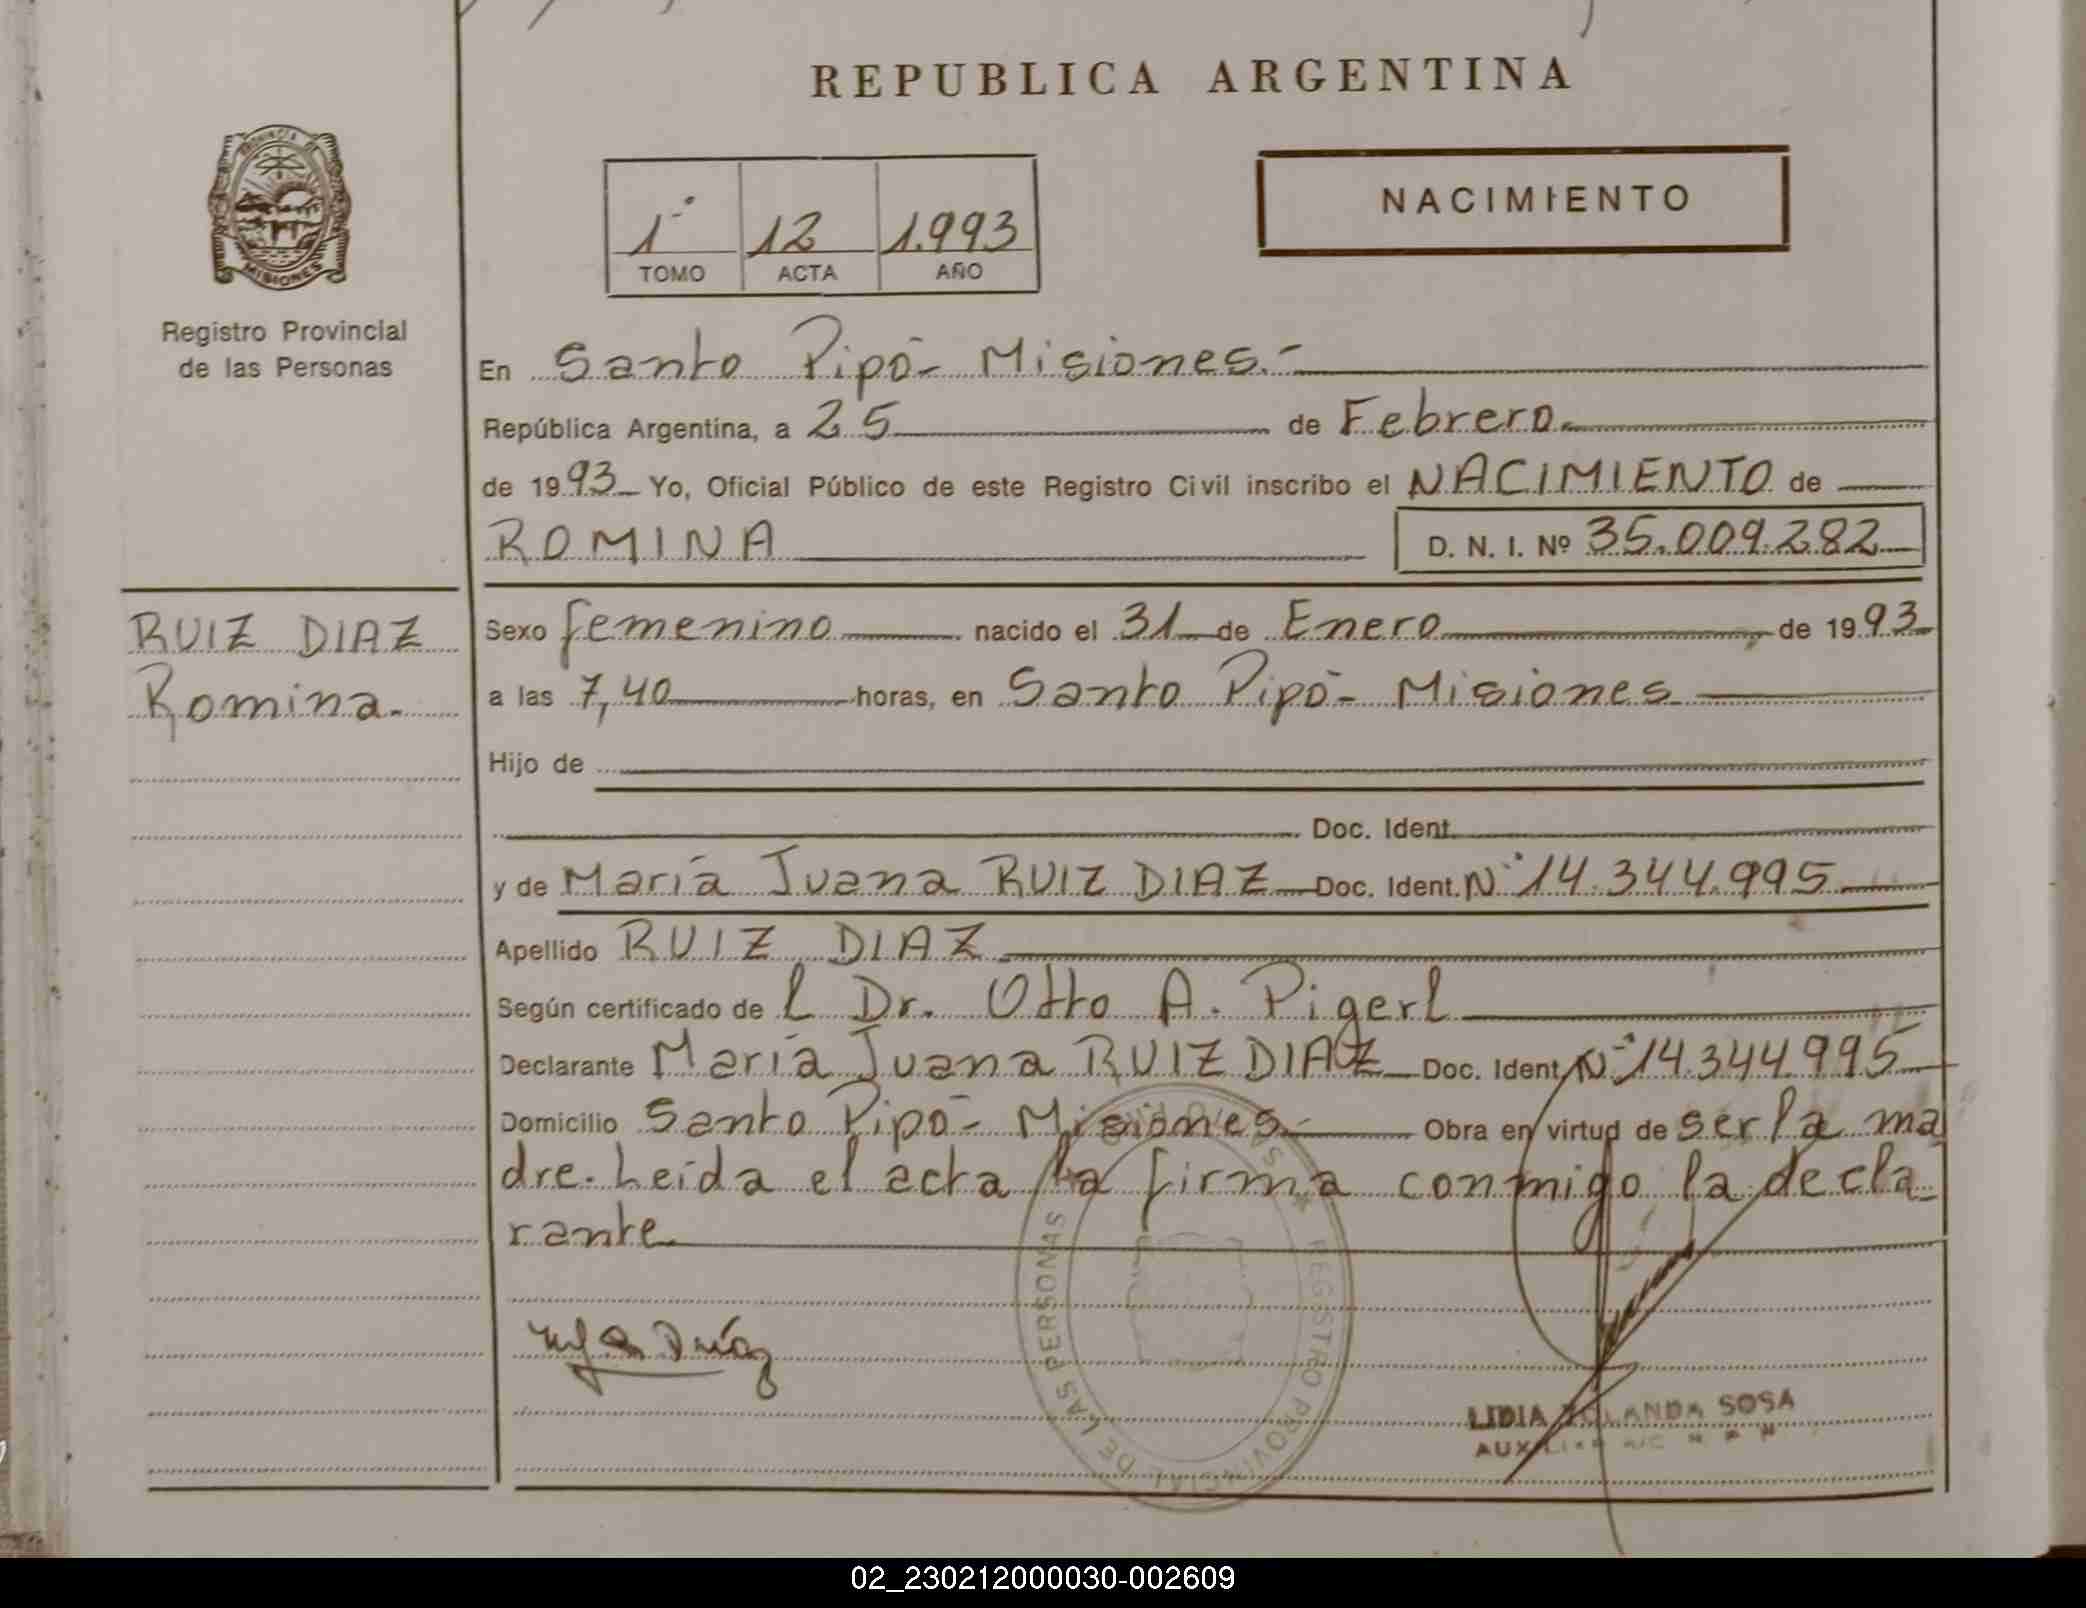 REPUBLICA ARGENTINA
PROVINCIA DE MISIONES
Registro Provincial
de las Personas
1° 12 1.993
TOMO ACTA AÑO
NACIMIENTO
En Santo Pipó - Misiones.-
República Argentina, a 25 de Febrero
de 1993 Yo, Oficial Público de este Registro Civil inscribo el NACIMIENTO de
ROMINA D. N. I. Nº 35.009.282
RUIZ DIAZ
Romina.
Sexo femenino nacido el 31 de Enero de 1993
a las 7,40 horas, en Santo Pipó - Misiones
Hijo de
Doc. Ident.
y de María Juana RUIZ DIAZ Doc. Ident. N° 14.344.995
Apellido RUIZ DIAZ
Según certificado de l Dr. Otto A. Pigerl
Declarante María Juana RUIZ DIAZ Doc. Ident. N° 14.344.995
Domicilio Santo Pipó - Misiones Obra en virtud de ser la ma
dre. Leída el acta la firma conmigo la decla-
rante.
REGISTRO PROVINCIAL DE LAS PERSONAS
Díaz
LIDIA YOLANDA SOSA
02_230212000030-002609